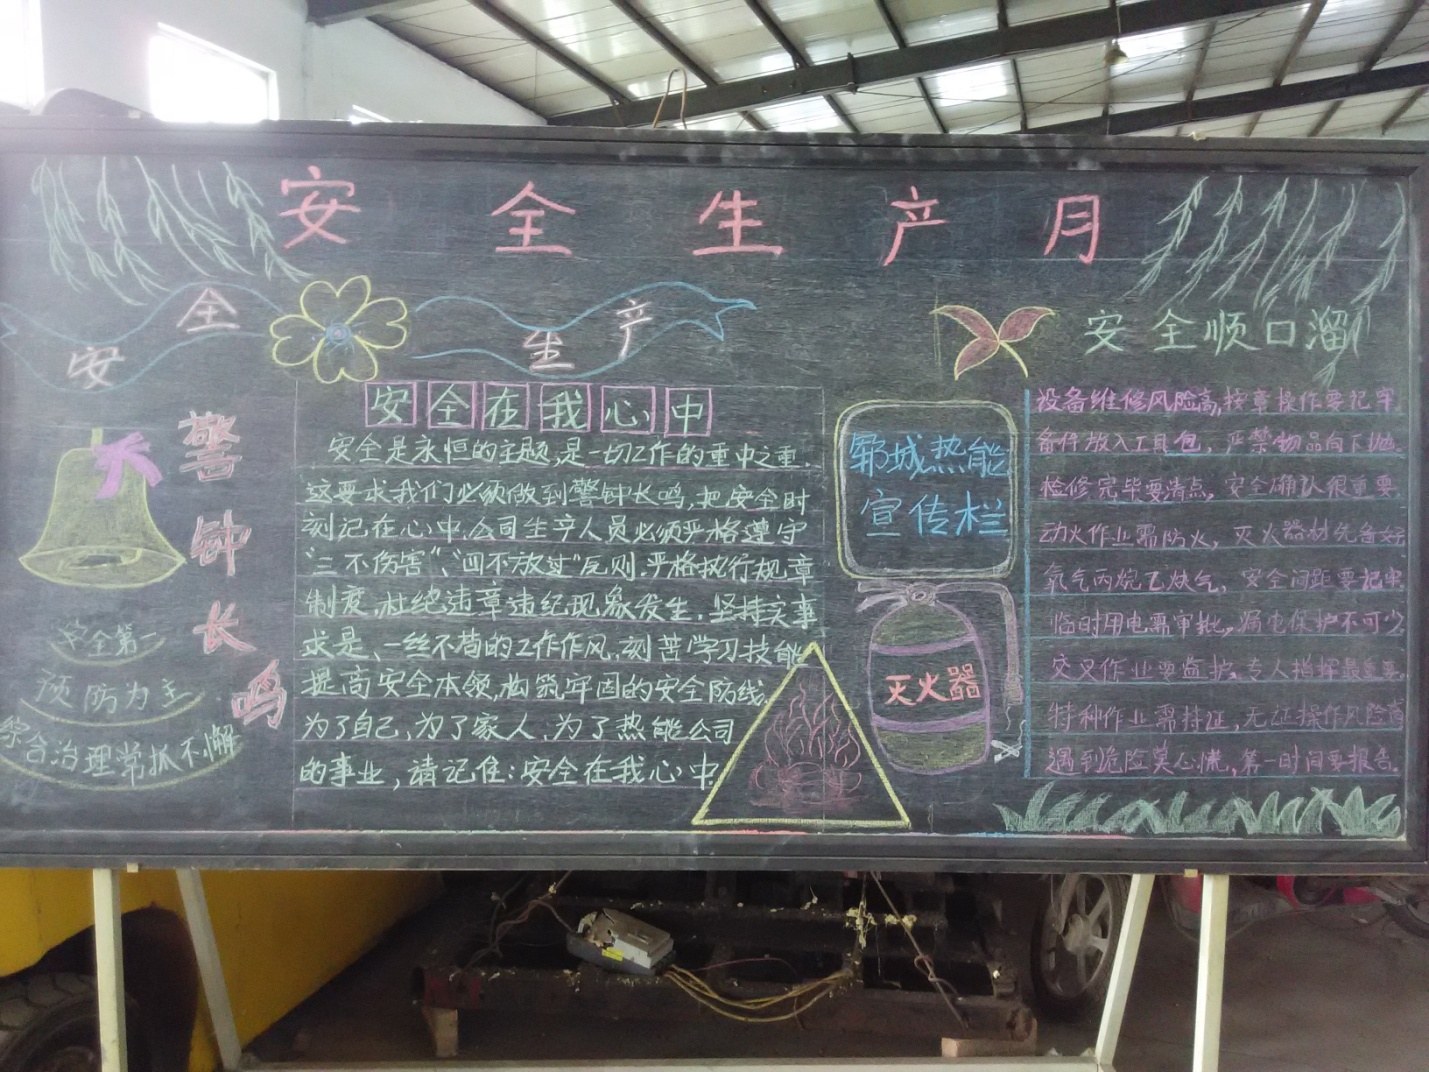 安全生产月
安全
生产
警钟长鸣
安全第一
预防为主
综合治理常抓不懈
安全在我心中
安全是永恒的主题,是一切工作的重中之重.
这要求我们必须做到警钟长鸣,把安全时
刻记在心中.公司生产人员必须严格遵守
“三不伤害”、“四不放过”反则.严格执行规章
制度,杜绝违章违纪现象发生.坚持实事
求是、一丝不苟的工作作风.刻苦学习技能
提高安全本领,构筑牢固的安全防线.
为了自己,为了家人,为了热能公司
的事业,请记住:安全在我心中.
郓城热能
宣传栏
灭火器
安全顺口溜
设备维修风险高,按章操作要记牢
备件放入工具包,严禁物品向下抛
检修完毕要清点,安全确认很重要
动火作业需防火,灭火器材先备好
氧气丙烷乙炔气,安全间距要记牢
临时用电需审批,漏电保护不可少
交叉作业要监护,专人指挥最重要
特种作业需持证,无证操作风险高
遇到危险莫心慌,第一时间要报告.